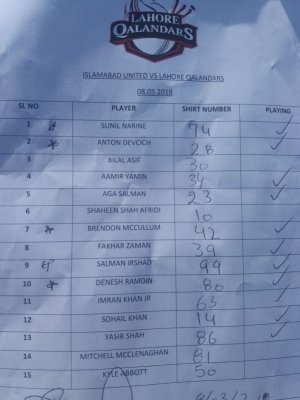 LAHORE
QALANDARS
ISLAMABAD UNITED VS LAHORE QALANDARS
08.03.2018
SL NO PLAYER SHIRT NUMBER PLAYING
1 SUNIL NARINE 74 ✓
2 ANTON DEVCICH 28 ✓
3 BILAL ASIF 30
4 AAMIR YAMIN 34 ✓
5 AGA SALMAN 23 ✓
6 SHAHEEN SHAH AFRIDI 10
7 BRENDON MCCULLUM 42 ✓
8 FAKHAR ZAMAN 39 ✓
9 SALMAN IRSHAD 99 ✓
10 DENESH RAMDIN 80 ✓
11 IMRAN KHAN JR 63 ✓
12 SOHAIL KHAN 14 ✓
13 YASIR SHAH 86 ✓
14 MITCHELL MCCLENAGHAN 81
15 KYLE ABBOTT 50